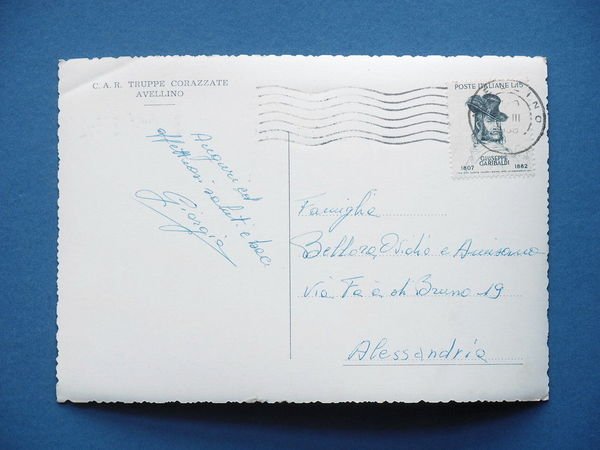 C. A. R. TRUPPE CORAZZATE
AVELLINO
Auguri ed
affettuosi saluti e baci
Giorgio
POSTE ITALIANE L.15
GIUSEPPE
GARIBALDI
1807 1882
Famiglia
Bellora Ovidio e
Via Fà di Bruno 19
Alessandria